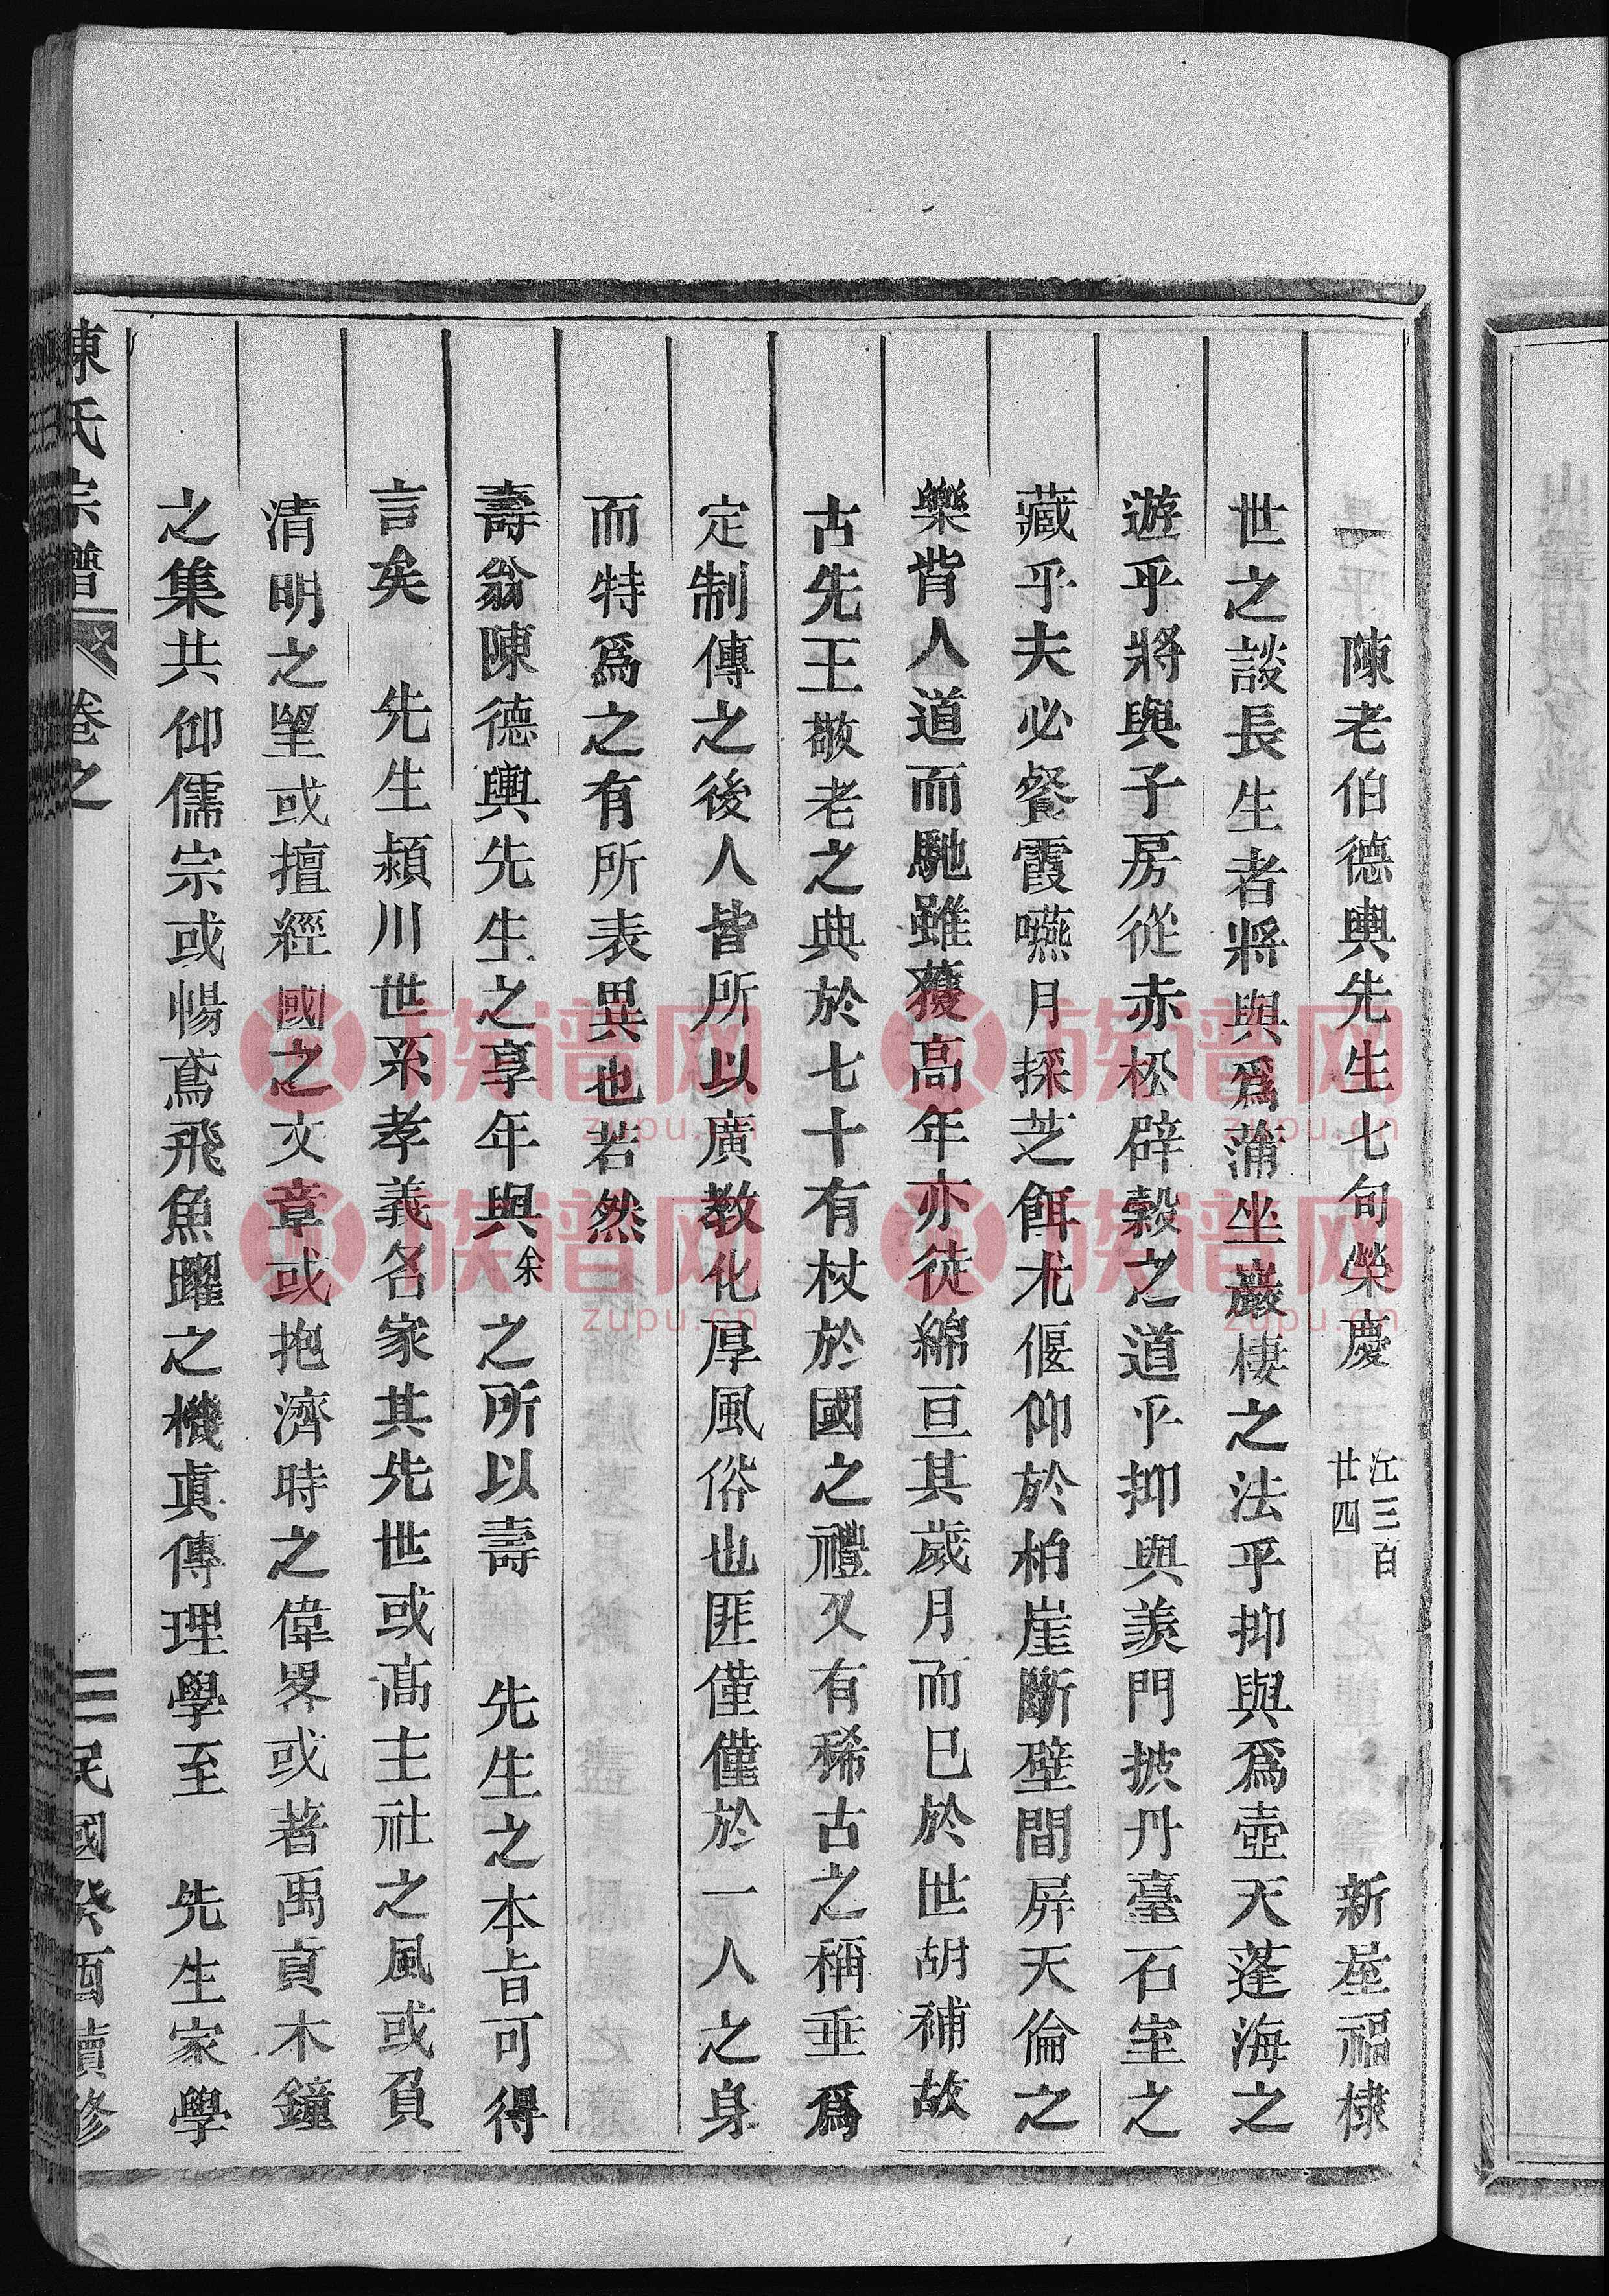 陳老伯德輿先生七旬榮慶 江三百廿四 新屋福棣
世之談長生者將與爲蒲坐巖棲之法乎抑與爲壺天蓬海之
遊乎將與子房從赤松辟穀之道乎抑與羨門披丹臺石室之
藏乎夫必餐霞嚥月採芝餌朮偃仰於柏崖斷壁間屏天倫之
樂背人道而馳雖獲高年亦徒綿亘其歲月而已於世胡補故
古先王敬老之典於七十有杖於國之禮又有稀古之稱垂爲
定制傳之後人皆所以廣教化厚風俗也匪僅僅於一人之身
而特爲之有所表異也若然
壽翁陳德輿先生之享年與余之所以壽 先生之本旨可得
言矣 先生潁川世系孝義名家其先世或高主社之風或負
清明之望或擅經國之文章或抱濟時之偉畧或著禹貢木鐘
之集共仰儒宗或暢鳶飛魚躍之機眞傳理學至 先生家學
陳氏宗譜 卷之 三 民國癸酉續修
族譜网
zupu.cn
族譜网
zupu.cn
族譜网
zupu.cn
族譜网
zupu.cn